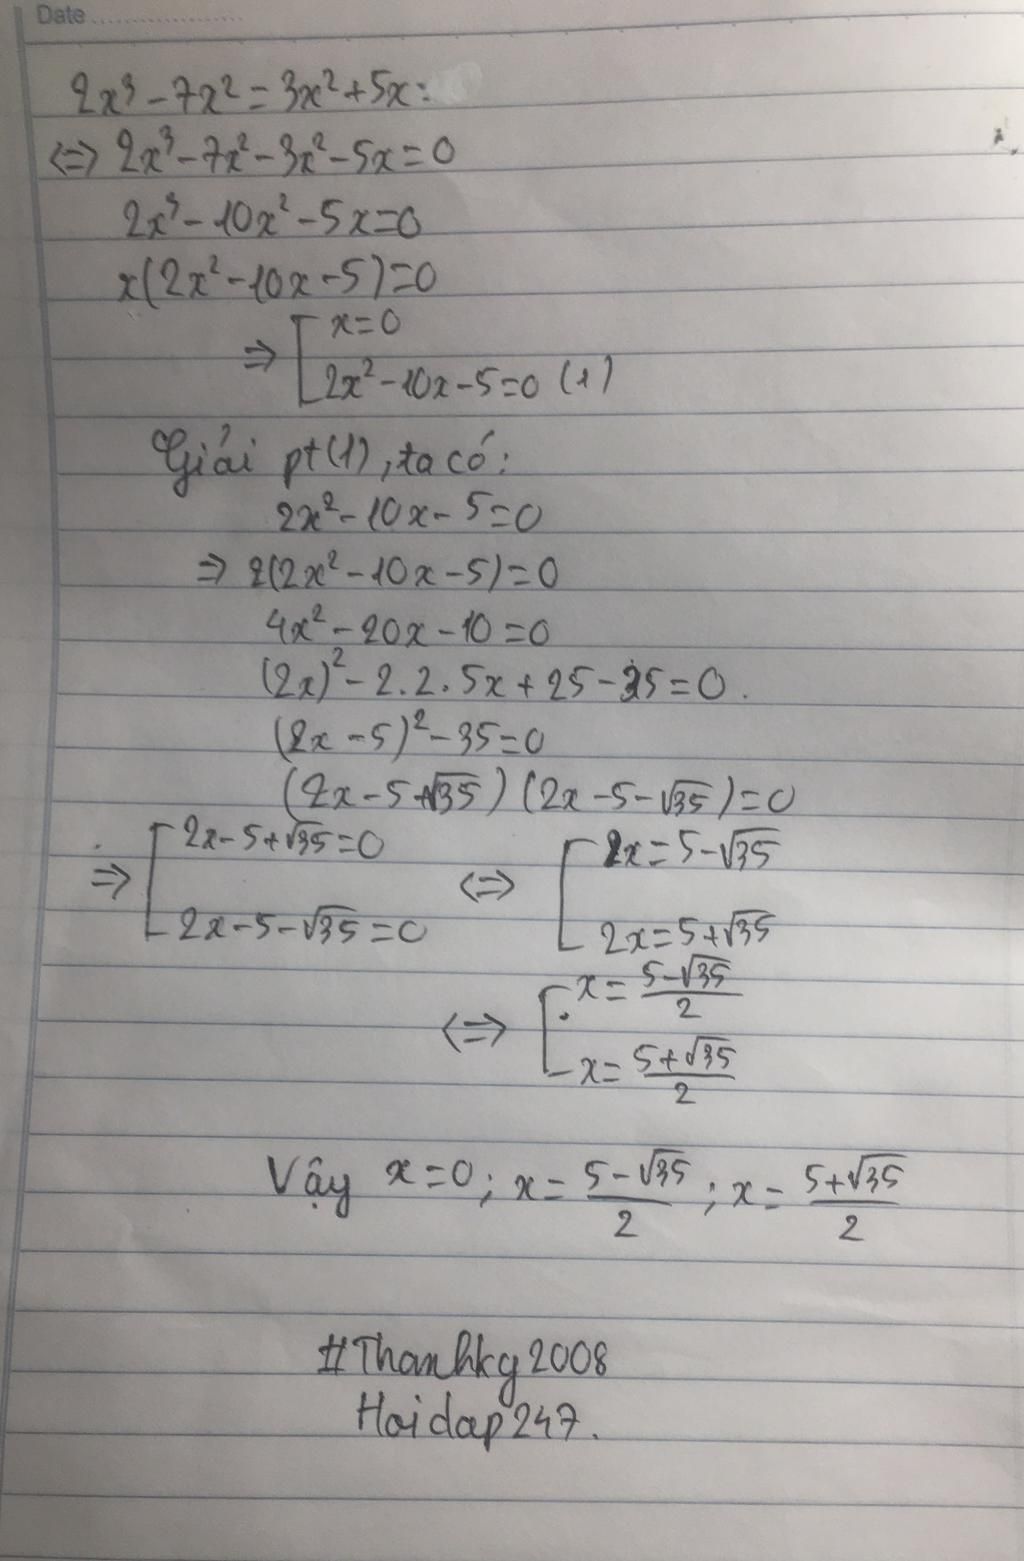 Date
2x³ - 7x² = 3x² + 5x:
⇔ 2x³ - 7x² - 3x² - 5x = 0
2x³ - 10x² - 5x = 0
x(2x² - 10x - 5) = 0
⇒ [ x = 0
2x² - 10x - 5 = 0 (1)
Giải pt (1), ta có:
2x² - 10x - 5 = 0
⇒ 2(2x² - 10x - 5) = 0
4x² - 20x - 10 = 0
(2x)² - 2.2.5x + 25 - 35 = 0.
(2x - 5)² - 35 = 0
(2x - 5 + √35) (2x - 5 - √35) = 0
⇒ [ 2x - 5 + √35 = 0 ⇔ [ 2x = 5 - √35
2x - 5 - √35 = 0 2x = 5 + √35
⇔ [ x = (5 - √35)/2
x = (5 + √35)/2
Vậy x = 0; x = (5 - √35)/2 ; x = (5 + √35)/2
#Thanhkg2008
Hoidap247.